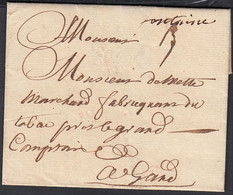 Monsieur
Monsieur de Mette
Marchand fabriquant du
tabac pres le grand
Comptoir
A Gand